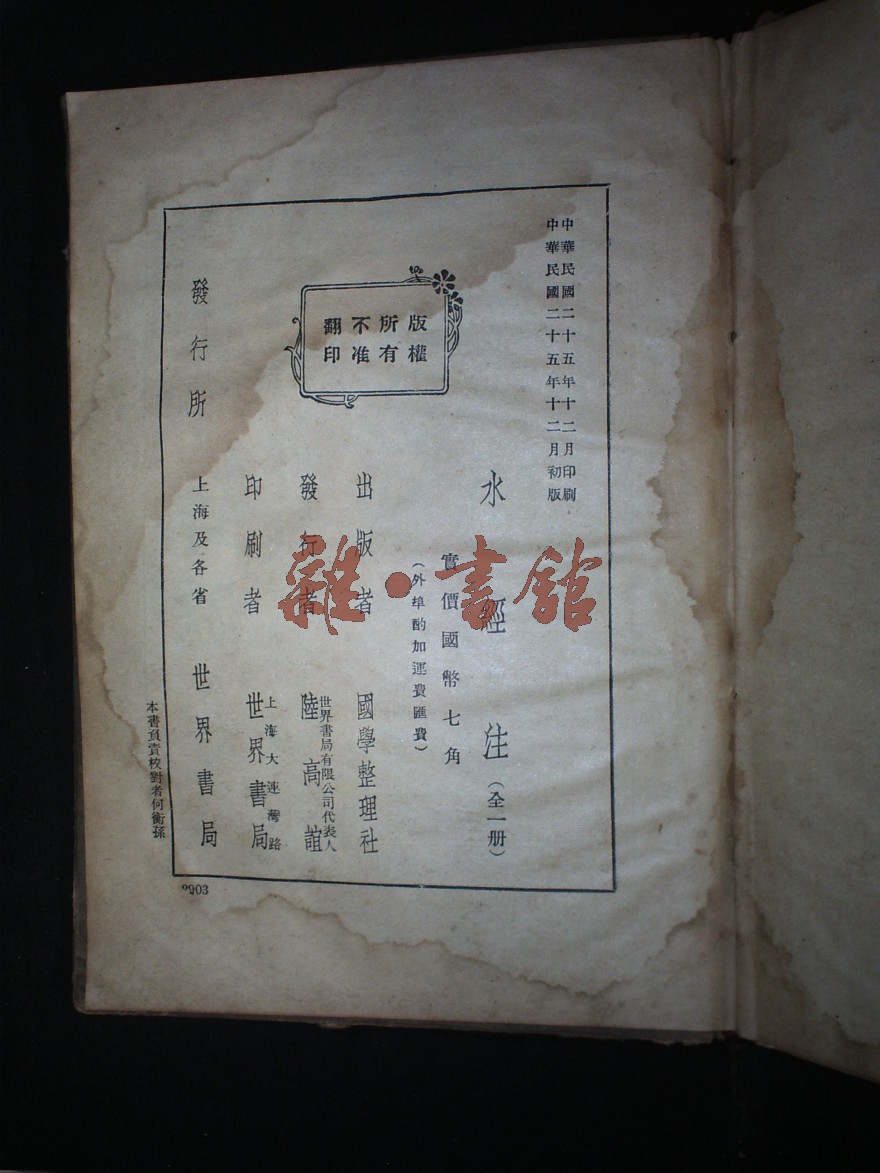 中華民國二十五年十二月印刷
中華民國二十五年十二月初版
水經注(全一册)
實價國幣七角
(外埠酌加運費匯費)
版權
所有
不准
翻印
出版者 國學整理社
發行者 世界書局有限公司代表人
陸高誼
印刷者 上海大連灣路
世界書局
發行所 上海及各省 世界書局
本書負責校對者何衡孫
9903
雜·書館